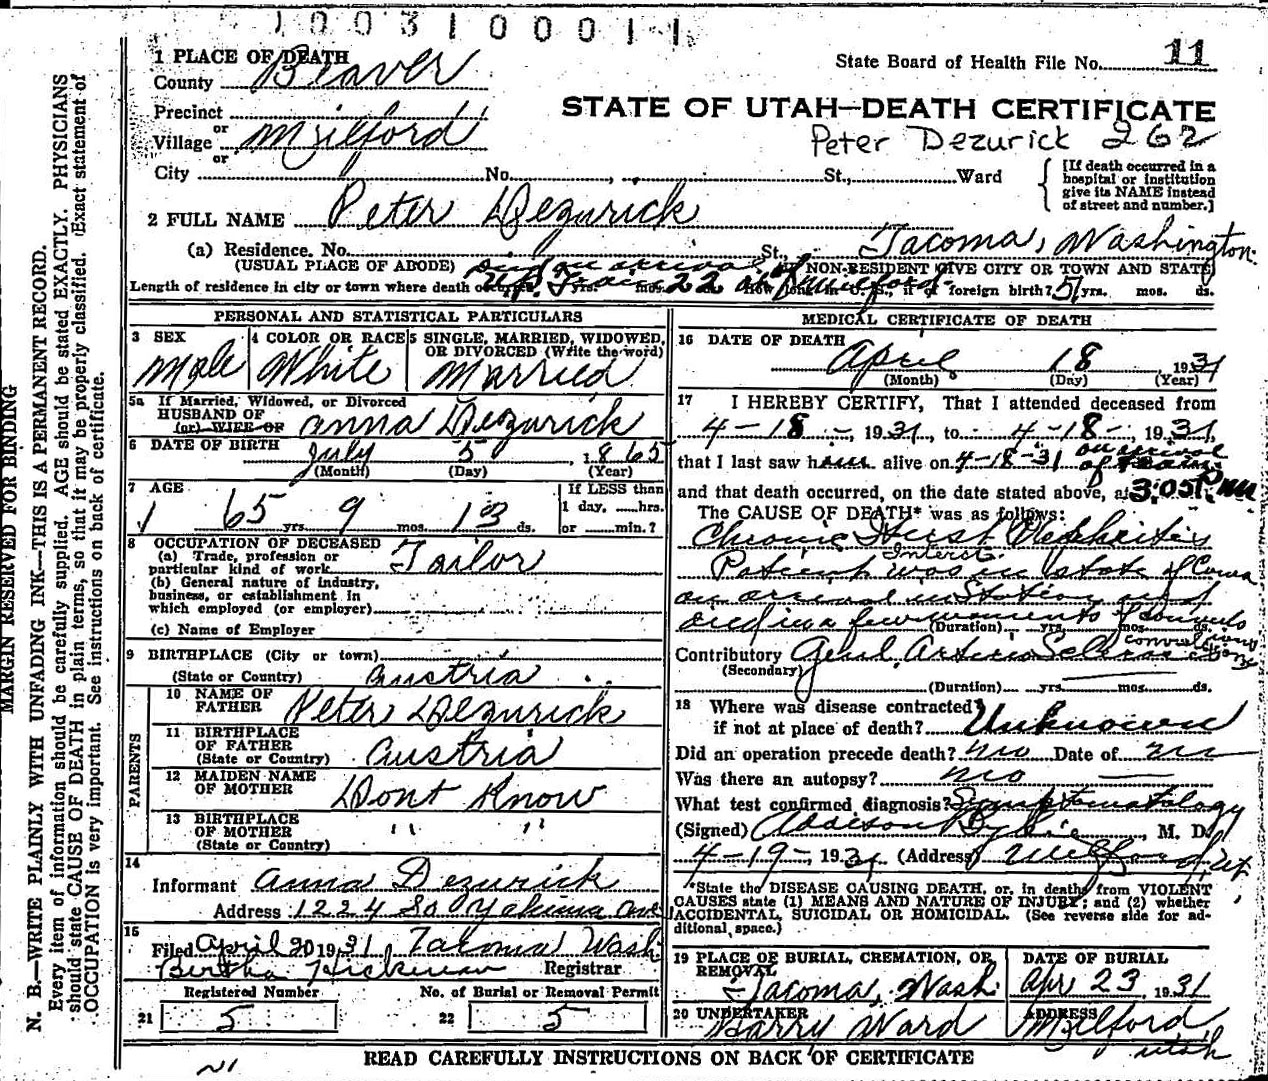 1003100011
1 PLACE OF DEATH
County Beaver
State Board of Health File No. 11
STATE OF UTAH—DEATH CERTIFICATE
Precinct
or
Village Milford
or
Peter Dezurick 262
City No. , St., Ward
[If death occurred in a
hospital or institution
give its NAME instead
of street and number.]
2 FULL NAME Peter Dezurick
(a) Residence, No. St. Tacoma, Washington.
(USUAL PLACE OF ABODE) NON-RESIDENT GIVE CITY OR TOWN AND STATE)
Length of residence in city or town where death foreign birth? 51 yrs. mos. ds.
PERSONAL AND STATISTICAL PARTICULARS
3 SEX
Male
4 COLOR OR RACE
White
5 SINGLE, MARRIED, WIDOWED,
OR DIVORCED (Write the word)
Married
5a If Married, Widowed, or Divorced
HUSBAND OF
(or) WIFE OF Anna Dezurick
6 DATE OF BIRTH July 5 1865
(Month) (Day) (Year)
7 AGE
65 yrs 9 mos. 13 ds.
If LESS than
1 day, hrs.
or min.?
8 OCCUPATION OF DECEASED
(a) Trade, profession or
particular kind of work Tailor
(b) General nature of industry,
business, or establishment in
which employed (or employer)
(c) Name of Employer
9 BIRTHPLACE (City or town)
(State or Country) Austria
PARENTS
10 NAME OF
FATHER Peter Dezurick
11 BIRTHPLACE
OF FATHER
(State or Country) Austria
12 MAIDEN NAME
OF MOTHER Dont Know
13 BIRTHPLACE
OF MOTHER " "
(State or Country)
14
Informant Anna Dezurick
Address 1224 So Yakima Ave
15
Filed April 20 1931 Tacoma Wash
Bertha Hickman Registrar
Registered Number
21 5
No. of Burial or Removal Permit
22 5
MEDICAL CERTIFICATE OF DEATH
16 DATE OF DEATH
April 18 1931
(Month) (Day) (Year)
17 I HEREBY CERTIFY, That I attended deceased from
4-18-, 1931, to 4-18-, 1931,
that I last saw him alive on 4-18-31 on arrival
of train
and that death occurred, on the date stated above, at 3:05 P.M.
The CAUSE OF DEATH* was as follows:
Chronic Nephritis
Interst.
Patient was in state of Coma
on arrival in Station and
died in a few moments of
(Duration) yrs. mos. ds.
convulsions
Contributory Genl. Arterio Sclerosis
(Secondary)
(Duration) yrs. mos. ds.
18 Where was disease contracted
if not at place of death? Unknown
Did an operation precede death? no Date of no
Was there an autopsy? no
What test confirmed diagnosis? Symptomatology
(Signed) Addison, M. D.
4-19-, 1931 (Address) Milford, Ut
*State the DISEASE CAUSING DEATH, or, in deaths from VIOLENT
CAUSES state (1) MEANS AND NATURE OF INJURY; and (2) whether
ACCIDENTAL, SUICIDAL OR HOMICIDAL. (See reverse side for ad-
ditional space.)
19 PLACE OF BURIAL, CREMATION, OR
REMOVAL
Tacoma, Wash.
DATE OF BURIAL
Apr 23 1931
20 UNDERTAKER
Harry Ward
ADDRESS
Milford,
Utah
READ CAREFULLY INSTRUCTIONS ON BACK OF CERTIFICATE
MARGIN RESERVED FOR BINDING
N. B.—WRITE PLAINLY WITH UNFADING INK—THIS IS A PERMANENT RECORD.
Every item of information should be carefully supplied. AGE should be stated EXACTLY. PHYSICIANS
should state CAUSE OF DEATH in plain terms, so that it may be properly classified. Exact statement of
OCCUPATION is very important. See instructions on back of certificate.